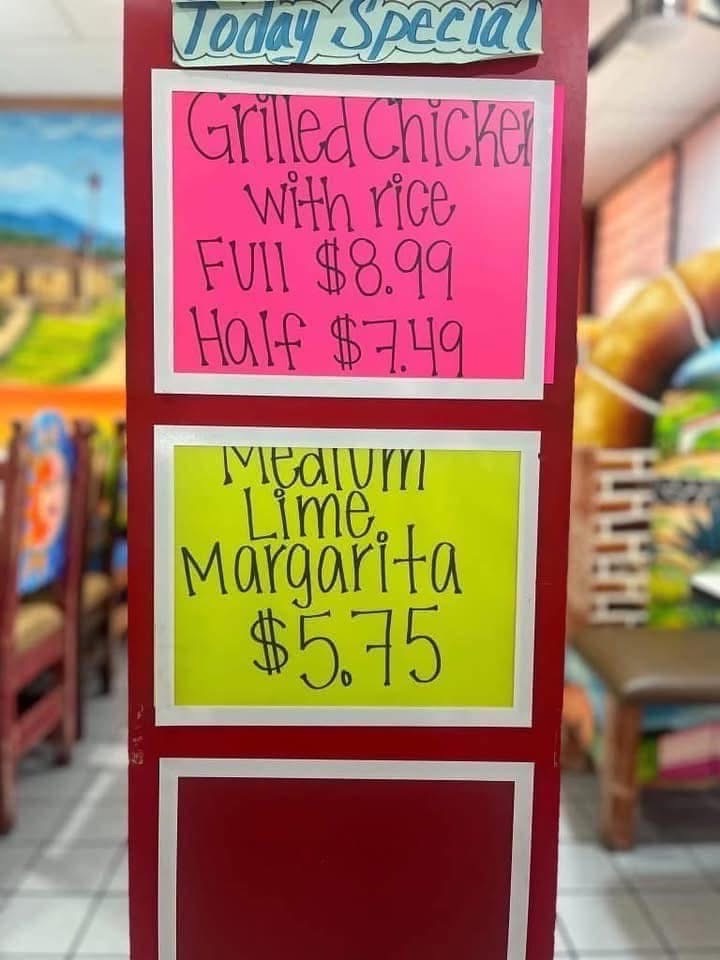 Today Special
Grilled Chicken
with rice
Full $8.99
Half $7.49
Medium
Lime
Margarita
$5.75